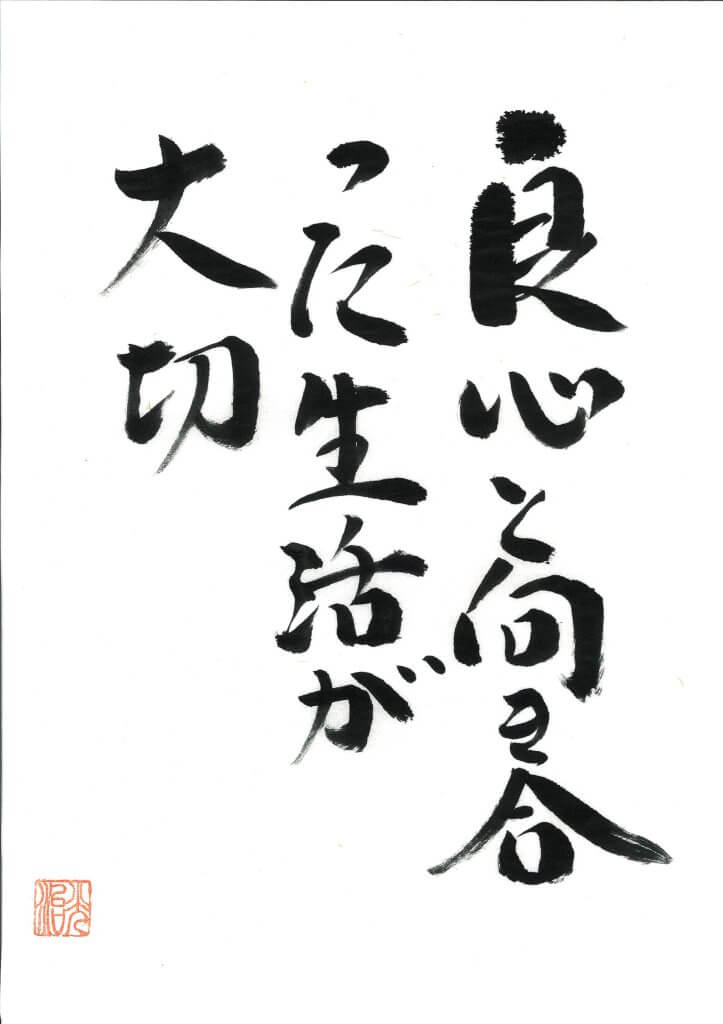 良心と向き合
った生活が
大切